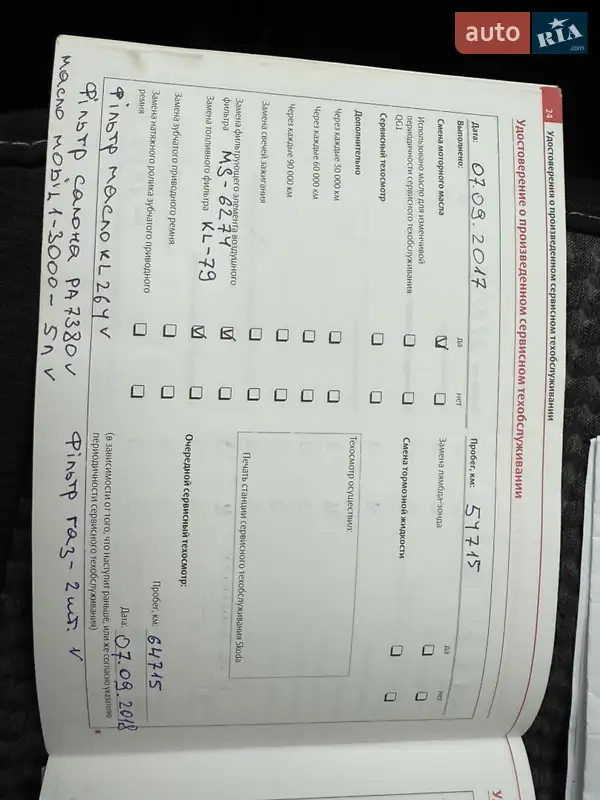 auto RIA .com
24 Удостоверения о произведенном сервисном техобслуживании
Удостоверение о произведенном сервисном техобслуживании
Дата: 07.09.2017
Пробег, км: 54715
Выполнено: да нет
Замена лямбда-зонда да нет
Смена моторного масла
Смена тормозной жидкости
Использовано масло для изменчивой
периодичности сервисного техобслуживания
QG1
Сервисный техосмотр
Дополнительно
Через каждые 30 000 км
Через каждые 60 000 км
Через каждые 90 000 км
Замена свечей зажигания
Замена фильтрующего элемента воздушного
фильтра MS-6274
Замена топливного фильтра KL-79
Замена зубчатого приводного ремня
Замена натяжного ролика зубчатого приводного
ремня
Техосмотр осуществил:
Печать станции сервисного техобслуживания Skoda
Очередной сервисный техосмотр:
Пробег, км: 64715
Дата: 07.09.2018
(в зависимости от того, что наступит раньше, или же согласно указателю
периодичности сервисного техобслуживания)
Фільтр масло KL264 v
Фільтр салона PA7380 v
Фільтр газ - 2 шт. v
масло мобіл 1-3000 - 5л v